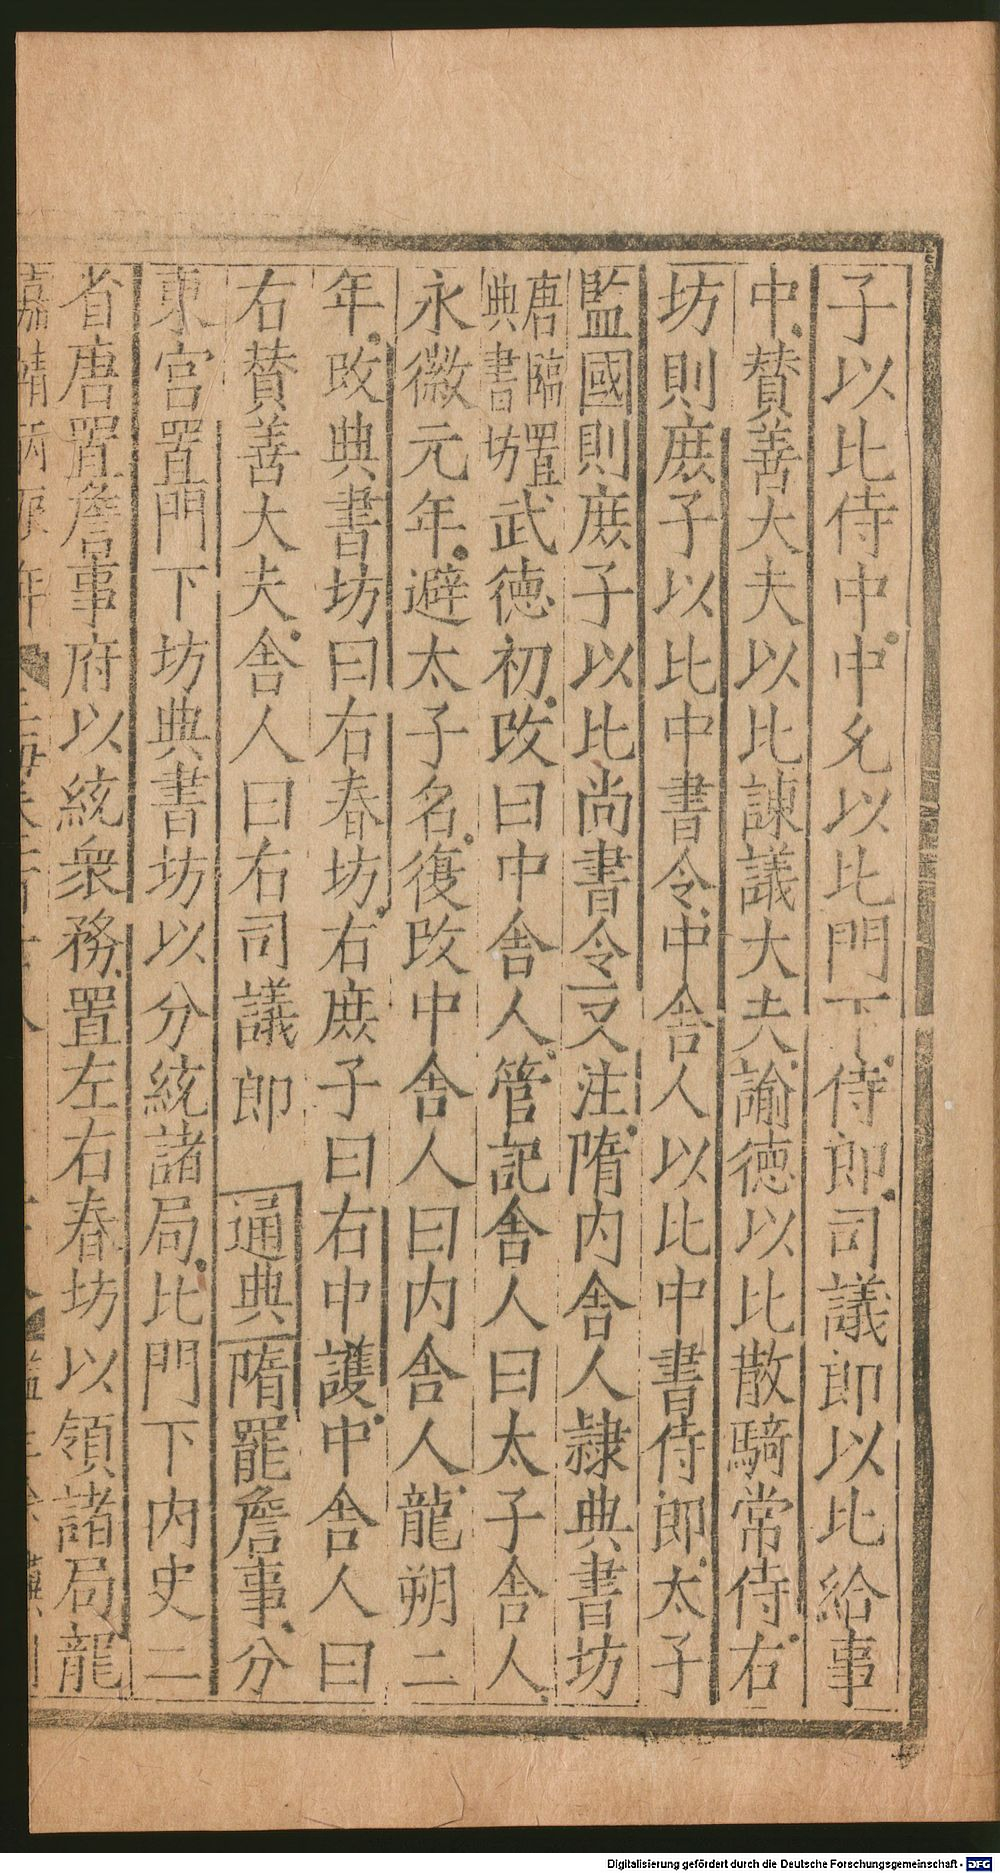 子以比侍中中允以比門下侍郎司議郎以比給事
中賛善大夫以比諫議大夫諭徳以比散騎常侍右
坊則庶子以比中書令中舎人以比中書侍郎太子
監國則庶子以比尚書令又注隋内舎人隷典書坊
唐臨置
典書坊
武徳初改曰中舎人管記舎人曰太子舎人
永徽元年避太子名復改中舎人曰内舎人龍朔二
年改典書坊曰右春坊右庶子曰右中護中舎人曰
右賛善大夫舎人曰右司議郎 通典隋罷詹事分
東宮置門下坊典書坊以分統諸局比門下内史二
省唐置詹事府以統衆務置左右春坊以領諸局龍
嘉靖丙 年
Digitalisierung gefördert durch die Deutsche Forschungsgemeinschaft - DFG